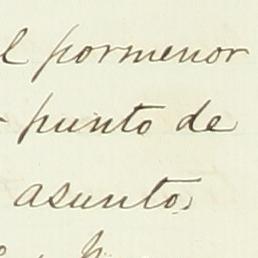 l pormenor
punto de
asunto,